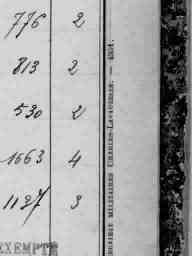 776 2
813 2
530 2
1663 4
1127 3
MILITAIRES CHARLES-LAVAUZELLE. — 4321.
EXEMPT